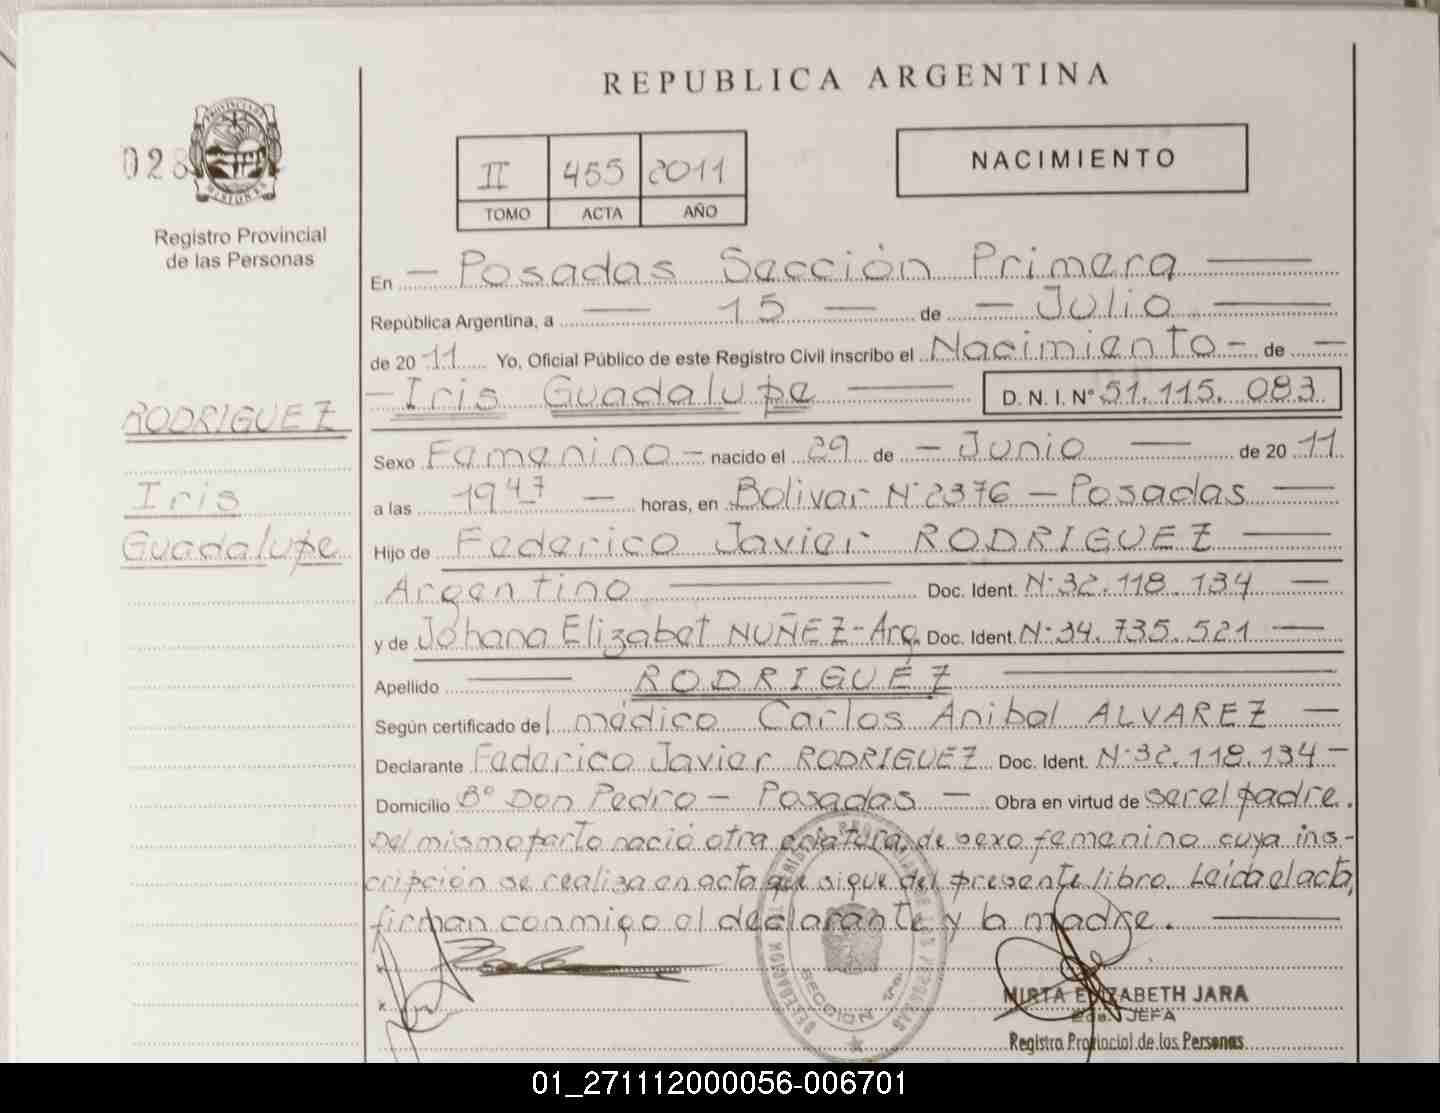 REPUBLICA ARGENTINA
028
Registro Provincial
de las Personas
II 455 2011
TOMO ACTA AÑO
NACIMIENTO
En — Posadas Sección Primera —
República Argentina, a — 15 — de — Julio —
de 20 11 Yo, Oficial Público de este Registro Civil inscribo el Nacimiento - de —
— Iris Guadalupe — D. N. I. N° 51.115.083
RODRIGUEZ
Iris
Guadalupe
Sexo Femenino - nacido el 29 de — Junio — de 20 11
a las 19 47 — horas, en Bolivar N° 2376 - Posadas —
Hijo de Federico Javier RODRIGUEZ —
Argentino — Doc. Ident. N° 32.118.134 —
y de Johana Elizabet NUÑEZ - Arg. Doc. Ident. N° 34.735.521 —
Apellido — RODRIGUEZ —
Según certificado del médico Carlos Anibal ALVAREZ —
Declarante Federico Javier RODRIGUEZ Doc. Ident. N° 32.118.134 —
Domicilio B° Don Pedro - Posadas — Obra en virtud de ser el padre.
Del mismo parto nació otra criatura, de sexo femenino cuya ins-
cripción se realiza en acta que sigue del presente libro. Leida el acta,
firman conmigo el declarante y la madre. —
SECCION 1ra
MIRTA ELIZABETH JARA
JEFA
Registro Provincial de las Personas
01_271112000056-006701